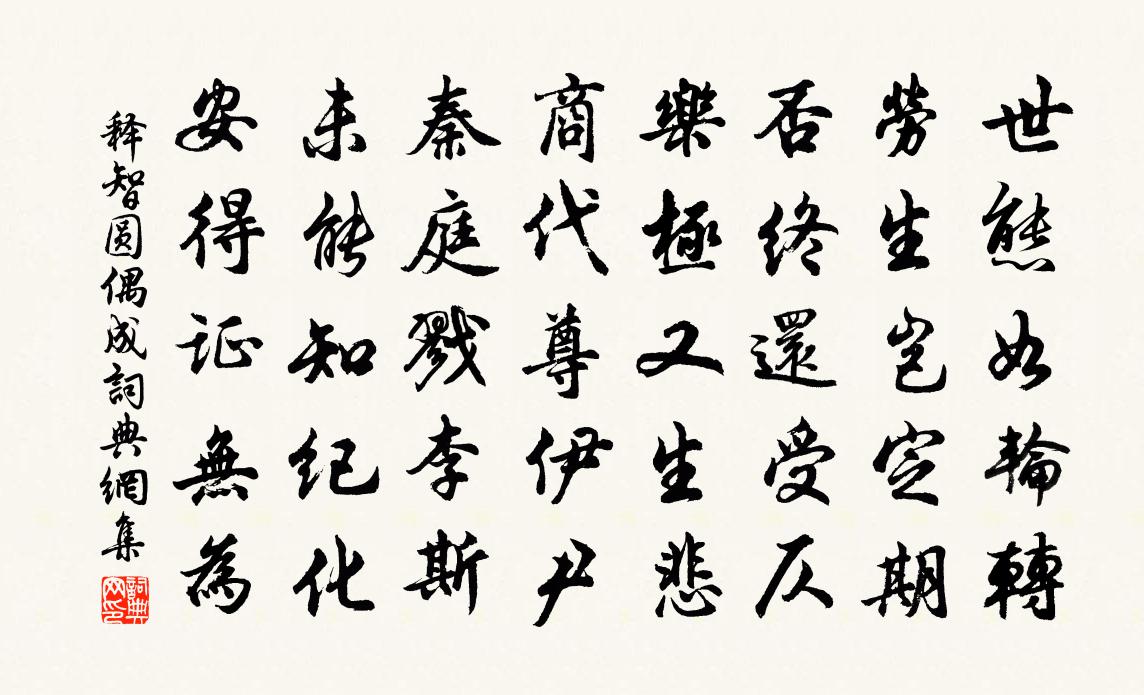 世態如輪轉
勞生豈定期
否終還受仄
樂極又生悲
商代尊伊尹
秦庭戮李斯
未能知纪化
安得证無為
释智圆偶成詞典網集